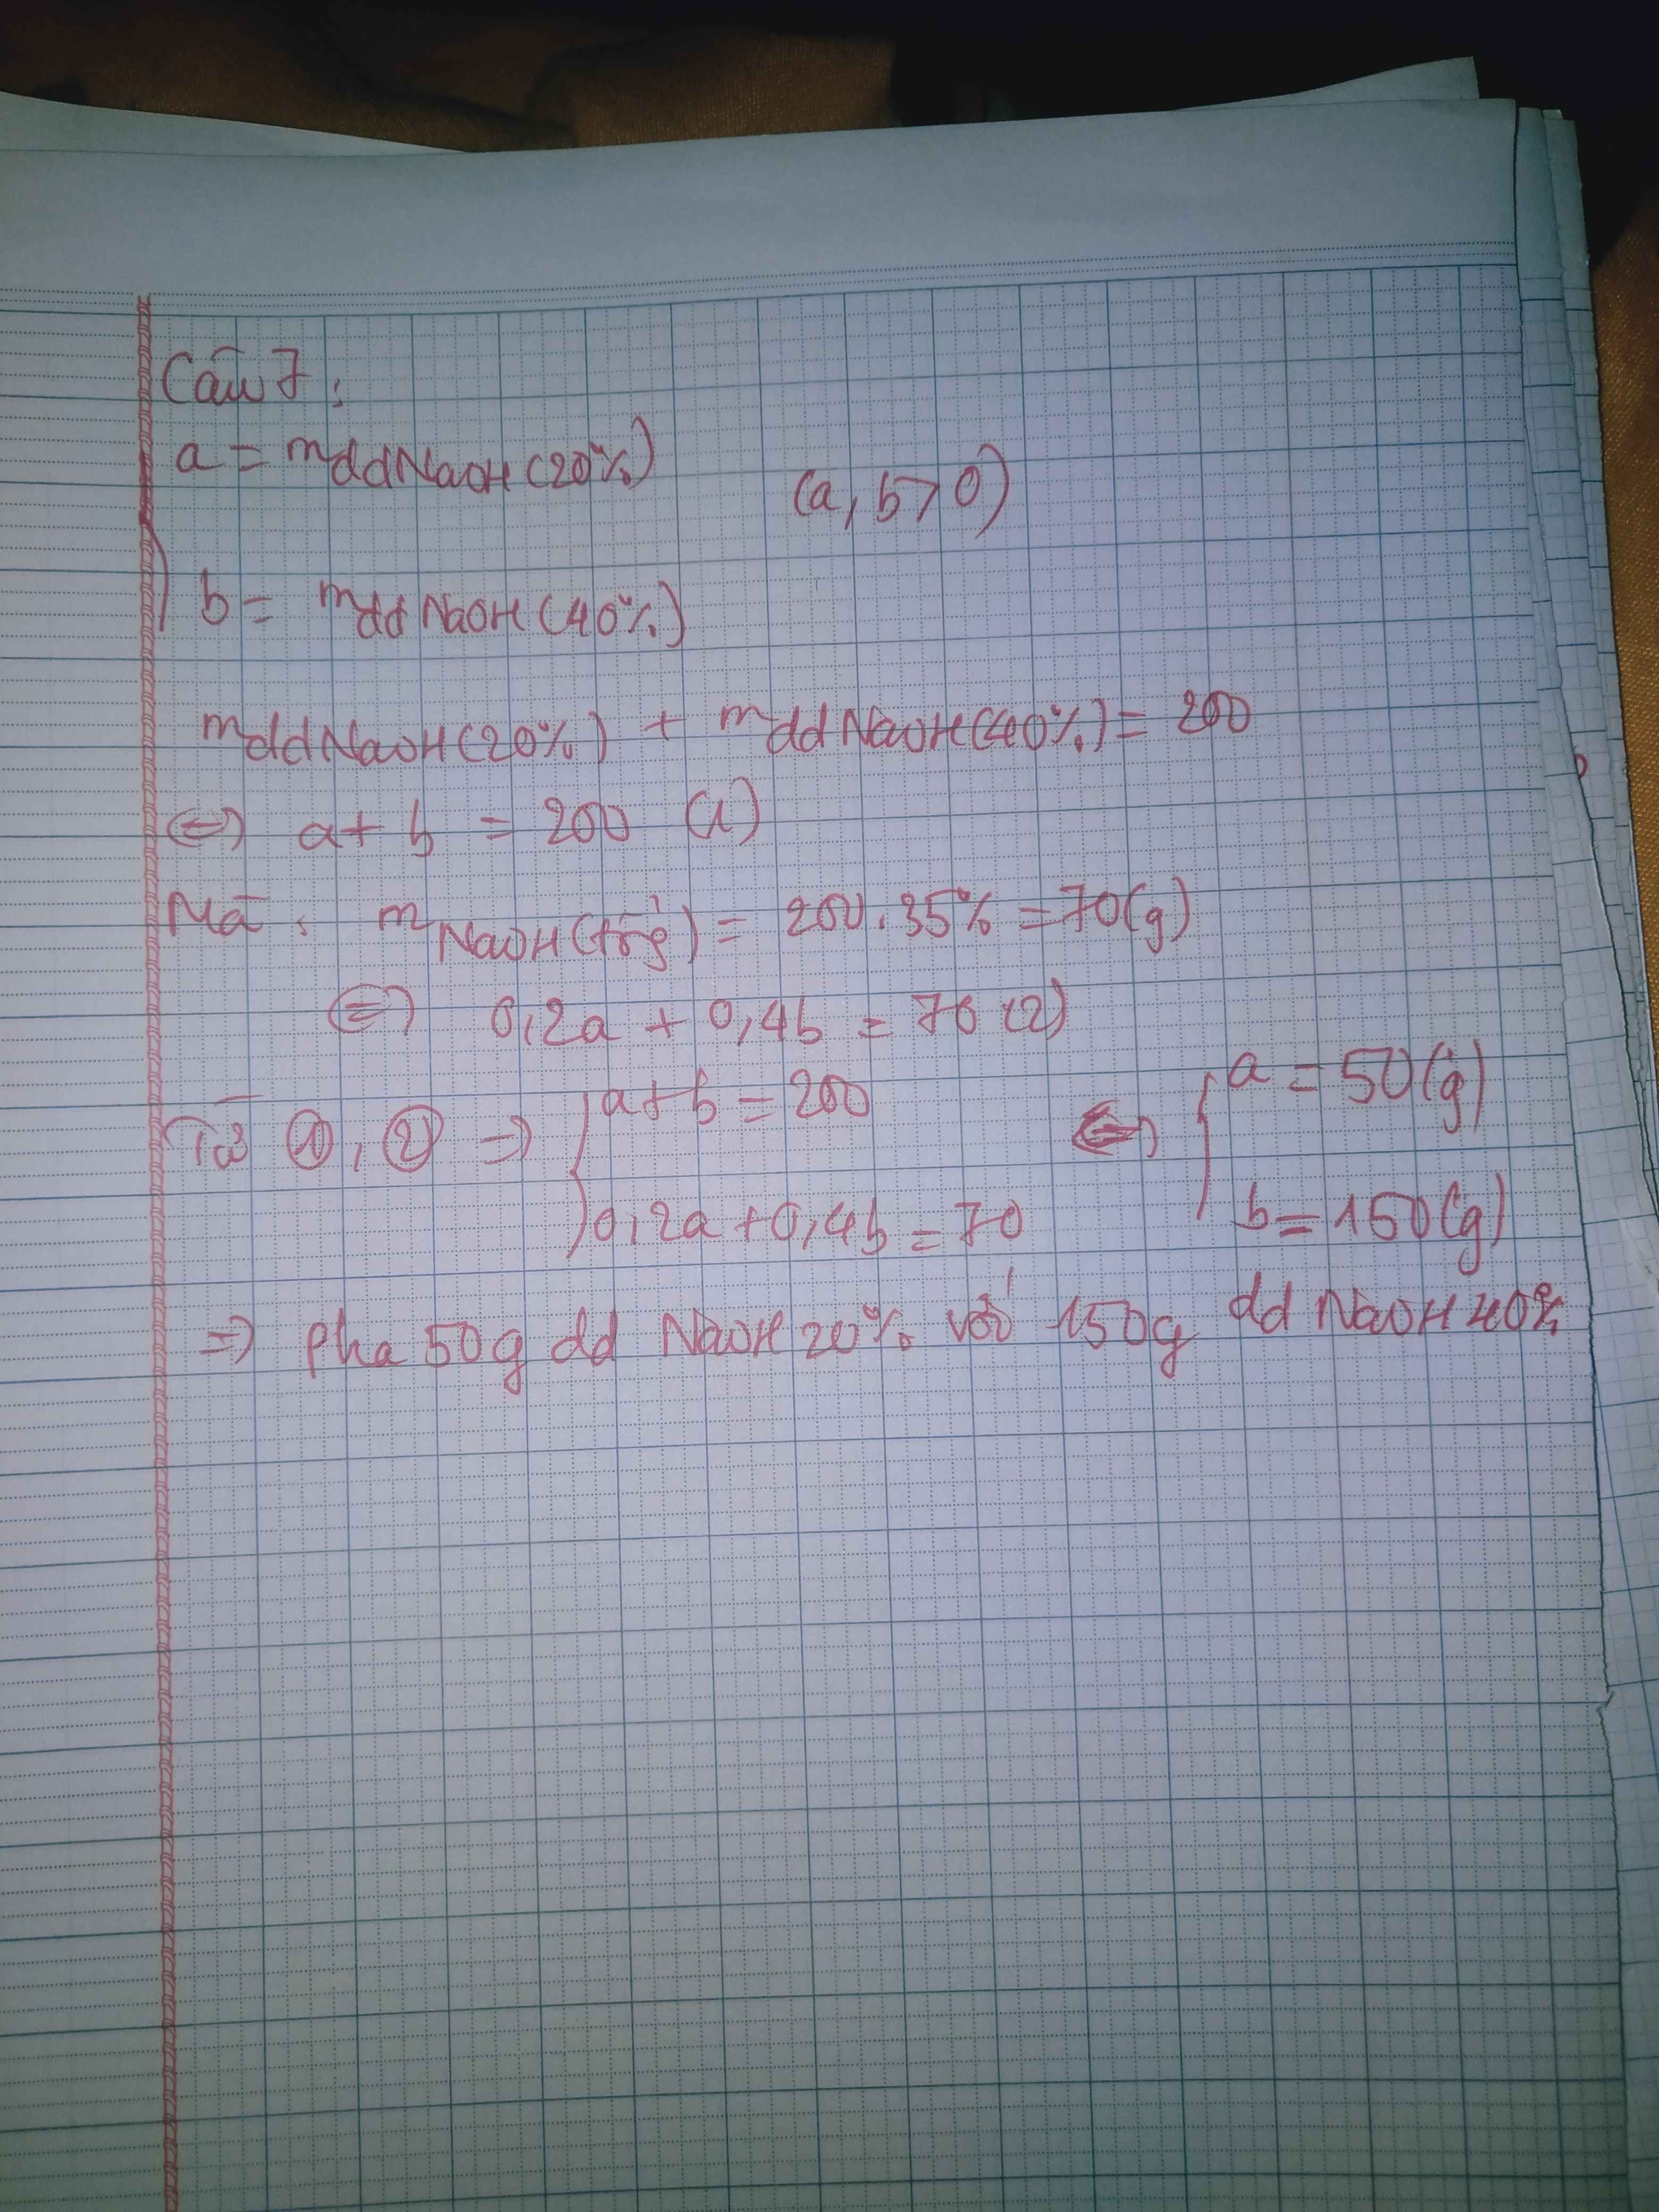 Câu 7:
a = mddNaOH(20%)
(a, b>0)
b = mddNaOH(40%)
mddNaOH(20%) + mddNaOH(40%) = 200
⇔ a + b = 200 (1)
Mà: mNaOH(tổng) = 200.35% = 70(g)
⇔ 0,2a + 0,4b = 70 (2)
Từ ①, ② ⇒ { a+b = 200 ⇔ { a = 50(g)
0,2a + 0,4b = 70 b = 150(g)
⇒ pha 50g dd NaOH 20% với 150g dd NaOH 40%